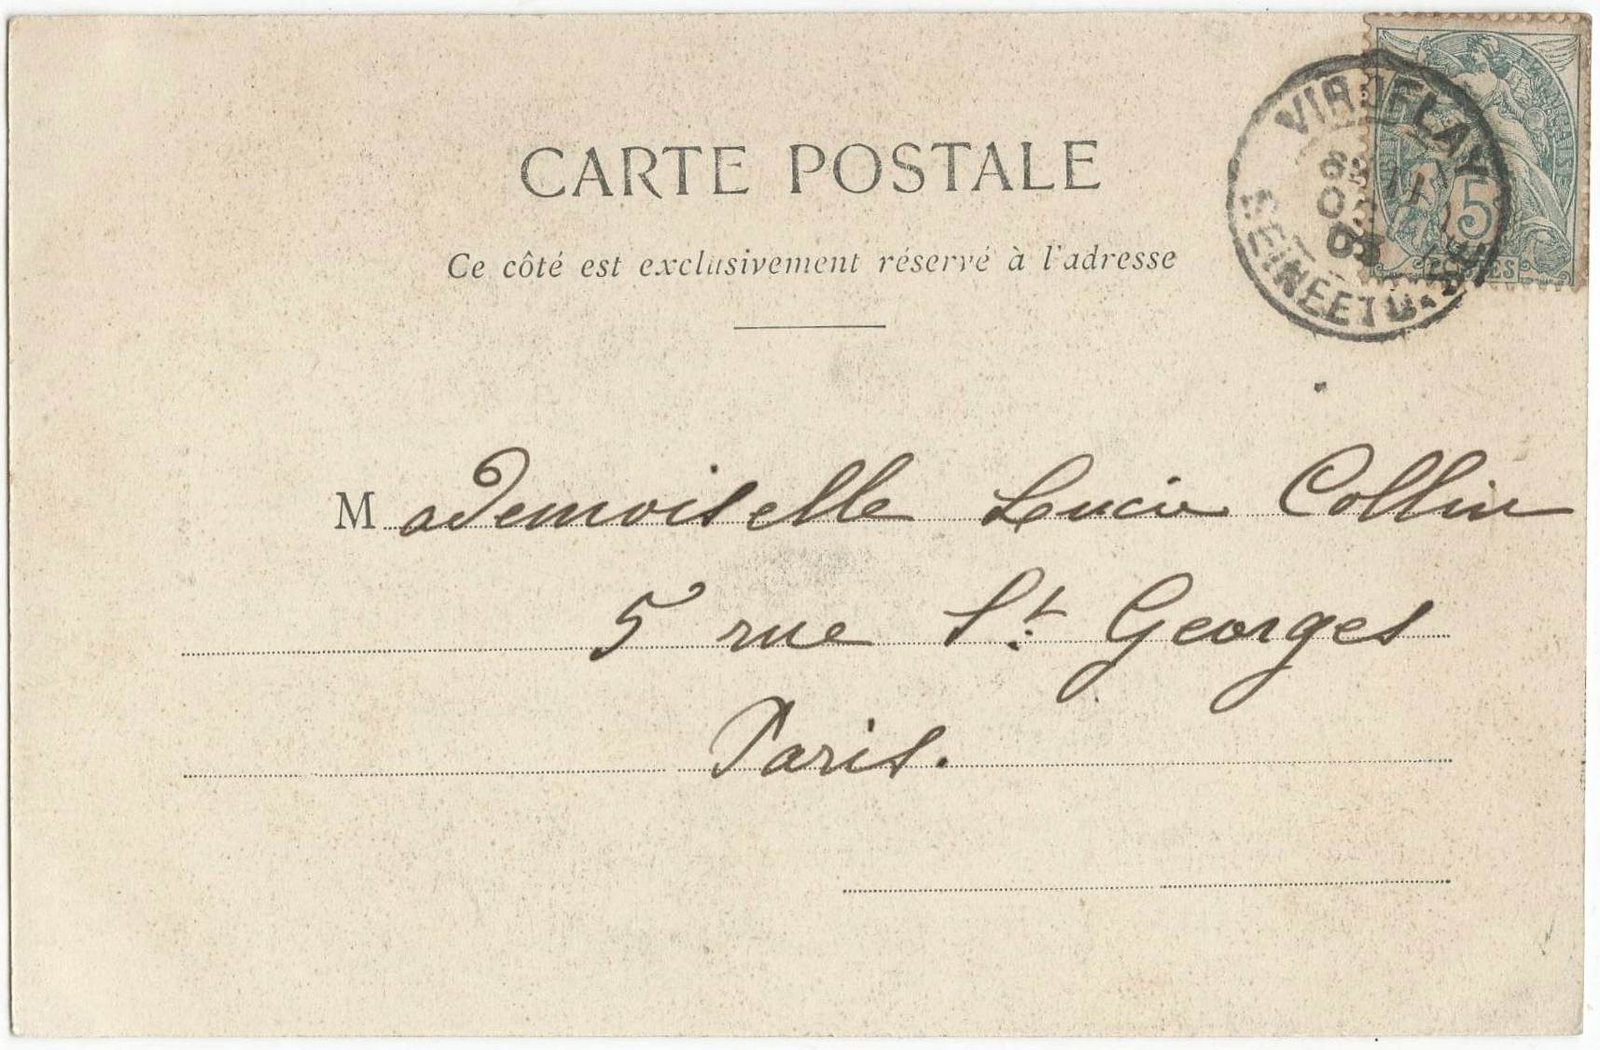 CARTE POSTALE
Ce côté est exclusivement réservé à l'adresse
VIROFLAY
SEINE ET OISE
5
POSTES
Mademoiselle Lucie Collin
5 rue St. Georges
Paris.